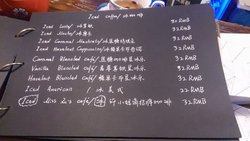 Iced coffee / 冰咖啡
Iced Latte / 冰拿铁 32 RMB
Iced Mocha / 冰摩卡 32 RMB
Iced Caramel Macchiato / 冰焦糖玛琪朵 32 RMB
Iced Hazelnut Cappuccino / 冰榛果卡布奇诺 32 RMB
Caramel Blended café / 焦糖咖啡冰乐 32 RMB
Vanilla Blended café / 香草拿铁冰乐 32 RMB
Hazelnut Blended café / 榛果卡布冰乐 32 RMB
Iced American / 冰美式 22 RMB
Iced 冰 32 RMB